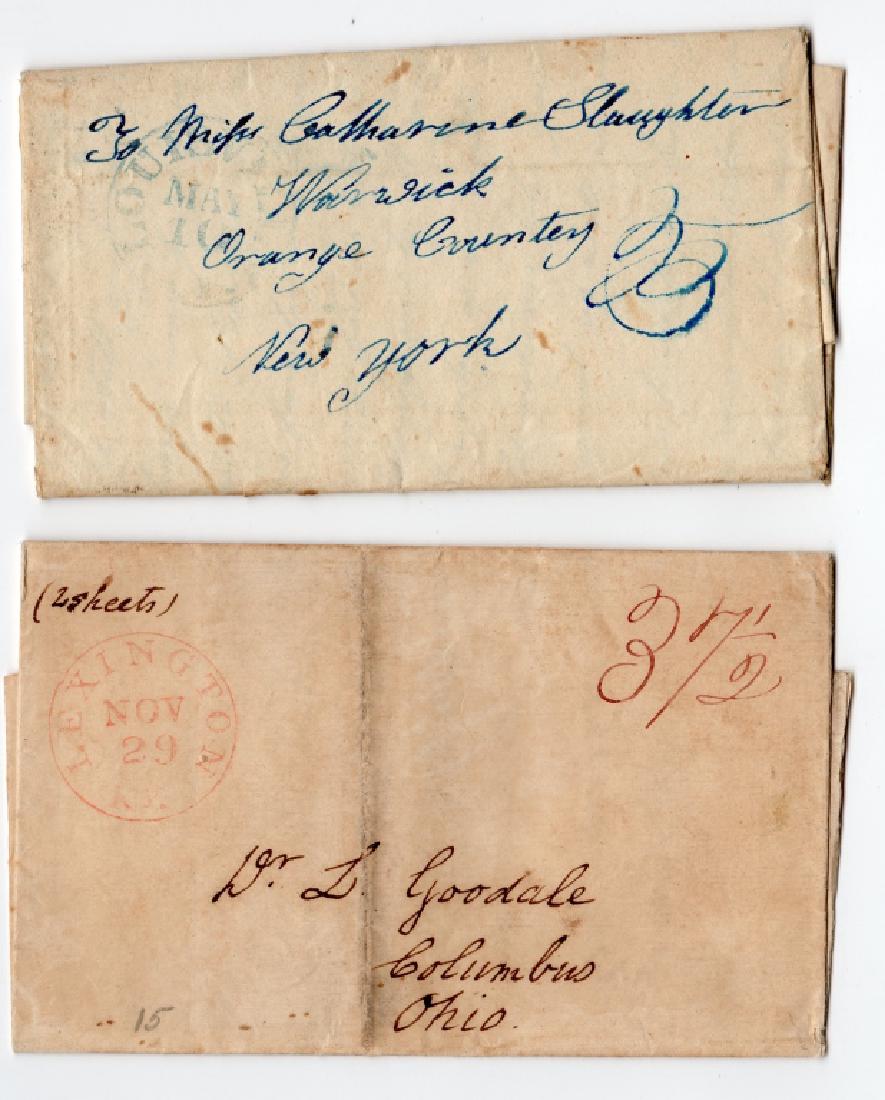 To Miss Catharine Slaughter
Warwick
Orange Countey
New York
25
MAY
10
(2 sheets)
37 1/2
LEXINGTON
NOV
29
KY.
Dr L. Goodale
Columbus
Ohio.
15